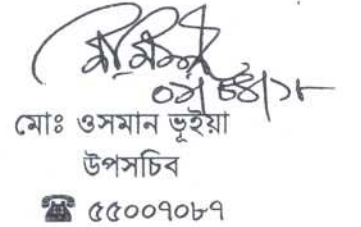 মোঃ ওসমান ভূইয়া
উপসচিব
☎ ৫৫০০৭০৮৭